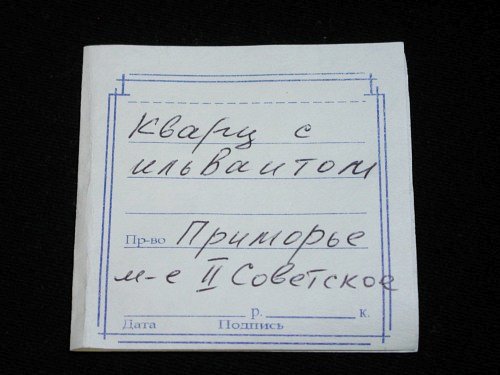 Кварц с
ильваитом
Пр-во Приморье
м-е II Советское
р. к.
Дата Подпись